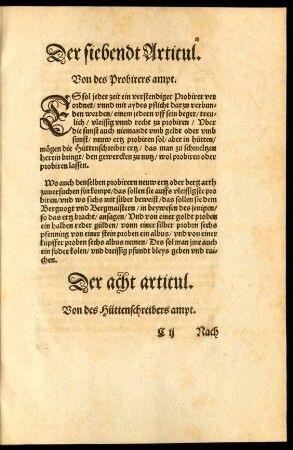 Der siebendt Articul.
Von des Probirers ampt.
ES sol jeder zeit ein verstendiger Probirer ver
ordnet/ vnnd mit aydes pflicht darzu verbun
den werden/ einem jedern vff sein beger/ treu
lich/ vleissig vnnd recht zu probiren/ Vber
die sunst auch niemandt vmb geldt oder vmb
sunst/ neuw ertz probiren sol/ aber in hütten/
mögen die Hüttenschreiber ertz/ das man zu schmeltzen
herein bringt/ den gewercken zu nutz/ wol probiren oder
probiren lassen.
Wo auch denselben probirern neuw ertz oder berg arth
zuuersuchen fürkompt/ das sollen sie auffs vleissigste pro
biren/ vnd wo sichs mit silber beweist/ das sollen sie dem
Bergvogt vnd Bergmaistern/ in beywesen des jenigen/
so das ertz bracht/ ansagen/ Vnd von einer goldt proben
ein halben reder gülden/ vonn einer silber proben sechs
pfenning/ von einer stein proben ein albus/ vnd von einer
kupffer proben sechs albus nemen/ Des sol man jme auch
ein fuder kolen/ vnd dreissig pfundt bleys geben vnd rai
chen.
Der acht articul.
Von des Hüttenschreibers ampt.
C ij Nach